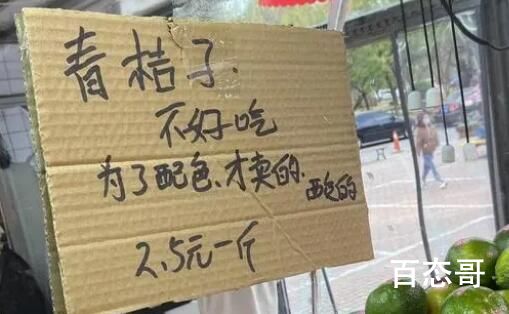 青桔子
不好吃
为了配色、才卖的、
配色的
2.5元一斤
百态哥